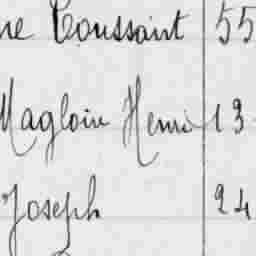 ne Toussaint 55
Magloire Henri 13
Joseph 24